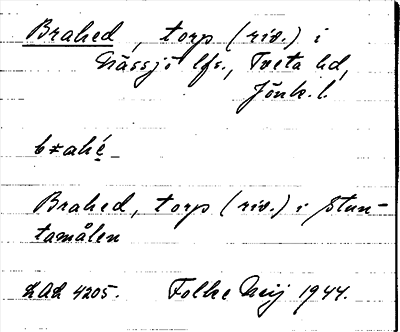 Brahed, torp (riv.) i
Nässjö lfs., Tveta hd,
Jönk. l.
Brahed, torp (riv.) i Stun-
tamålen
4205. Folke Meij 1944.